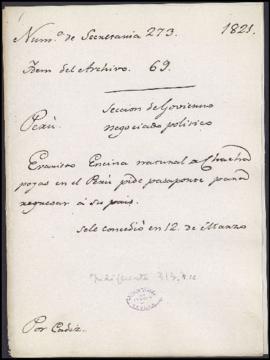 Num.º de Secretaria 273. 1821.
Idem del Archivo. 69.
Seccion de Govierno
Perú. negociado politico
Evaristo Encina natural de Chacha
poyas en el Perú pide pasaporte para
regresar á su pais.
se le concedió en 12 de Marzo
Indiferente 313
Por Cadiz.